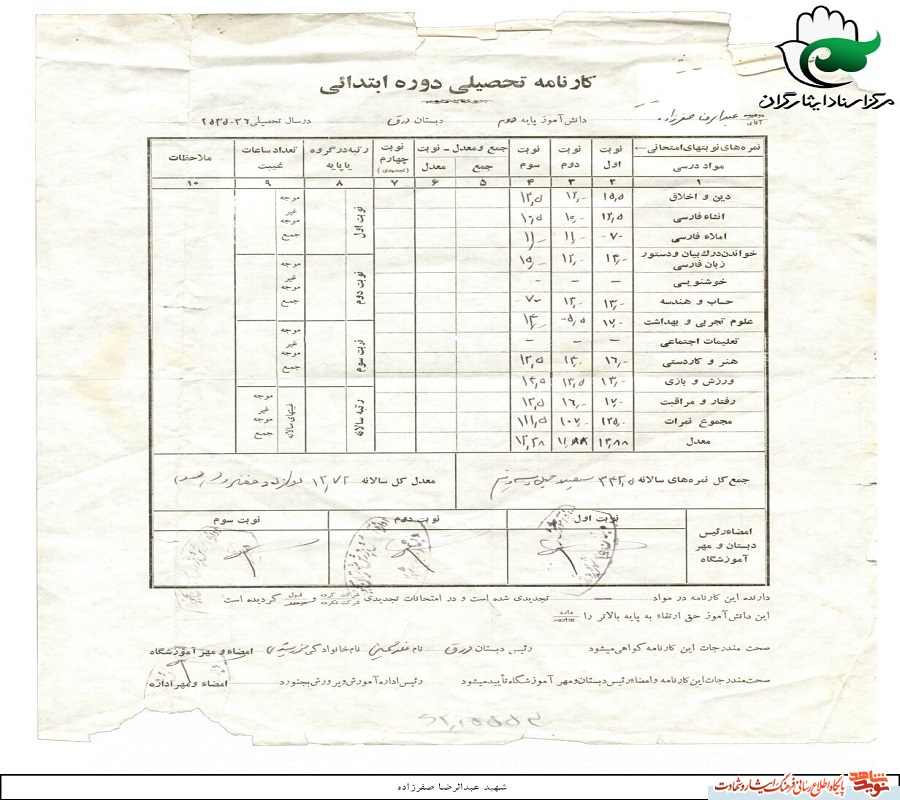 مرکز اسناد ایثارگران
کارنامه تحصیلی دوره ابتدائی
آقای عبدالرضا صفرزاده دانش‌آموز پایه دوم دبستان درق در سال تحصیلی ۳۶-۲۵۳۵
نمره‌های نوبتهای امتحانی نوبت اول نوبت دوم نوبت سوم جمع و معدل - نوبت نوبت چهارم (تجدیدی) رتبه در گروه یا پایه تعداد ساعات غیبت ملاحظات
مواد درسی جمع معدل
۱ ۲ ۳ ۴ ۵ ۶ ۷ ۸ ۹ ۱۰
دین و اخلاق ۱۵,۵ ۱۲,- ۱۲,۵
انشاء فارسی ۱۲,۵ ۱۰,-
املاء فارسی ۷- ۱۱,- ۱۱,-
خواندن درک بیان و دستور زبان فارسی ۱۴,- ۱۲,- ۱۵,-
خوشنویسی - - -
حساب و هندسه ۱۳,- ۱۳,- ۷-
علوم تجربی و بهداشت ۱۷,- ۵,۵ ۱۴,-
تعلیمات اجتماعی - - -
هنر و کاردستی ۱۶,- ۱۴,- ۱۲,۵
ورزش و بازی ۱۳,- ۱۳,۵ ۱۴,۵
رفتار و مراقبت ۱۷,- ۱۶,- ۱۳,۵
مجموع نمرات ۱۲۵,- ۱۰۷,- ۱۱۱,۵
معدل ۱۳,۸۸ ۱۱,۸۸ ۱۲,۳۸
نوبت اول موجه غیر موجه جمع
نوبت دوم موجه غیر موجه جمع
نوبت سوم موجه غیر موجه جمع
رتبه سالانه غیبتهای سالانه موجه غیر موجه جمع
جمع کل نمره‌های سالانه ۳۴۳,۵ معدل کل سالانه ۱۲,۷۲
امضاء رئیس دبستان و مهر آموزشگاه نوبت اول نوبت دوم نوبت سوم
دارنده این کارنامه در مواد — تجدیدی شده است و در امتحانات تجدیدی شرکت کرده شرکت نکرده و قبول مردود گردیده است
این دانش‌آموز حق ارتقاء به پایه بالاتر را دارد ندارد
صحت مندرجات این کارنامه گواهی میشود رئیس دبستان درق نام غلامحسین نام خانوادگی امضاء و مهر آموزشگاه
صحت مندرجات این کارنامه و امضاء رئیس دبستان و مهر آموزشگاه تأیید میشود رئیس اداره آموزش و پرورش بجنورد امضاء و مهر اداره
شهید عبدالرضا صفرزاده
نوید شاهد
پایگاه اطلاع رسانی فرهنگ ایثار و شهادت